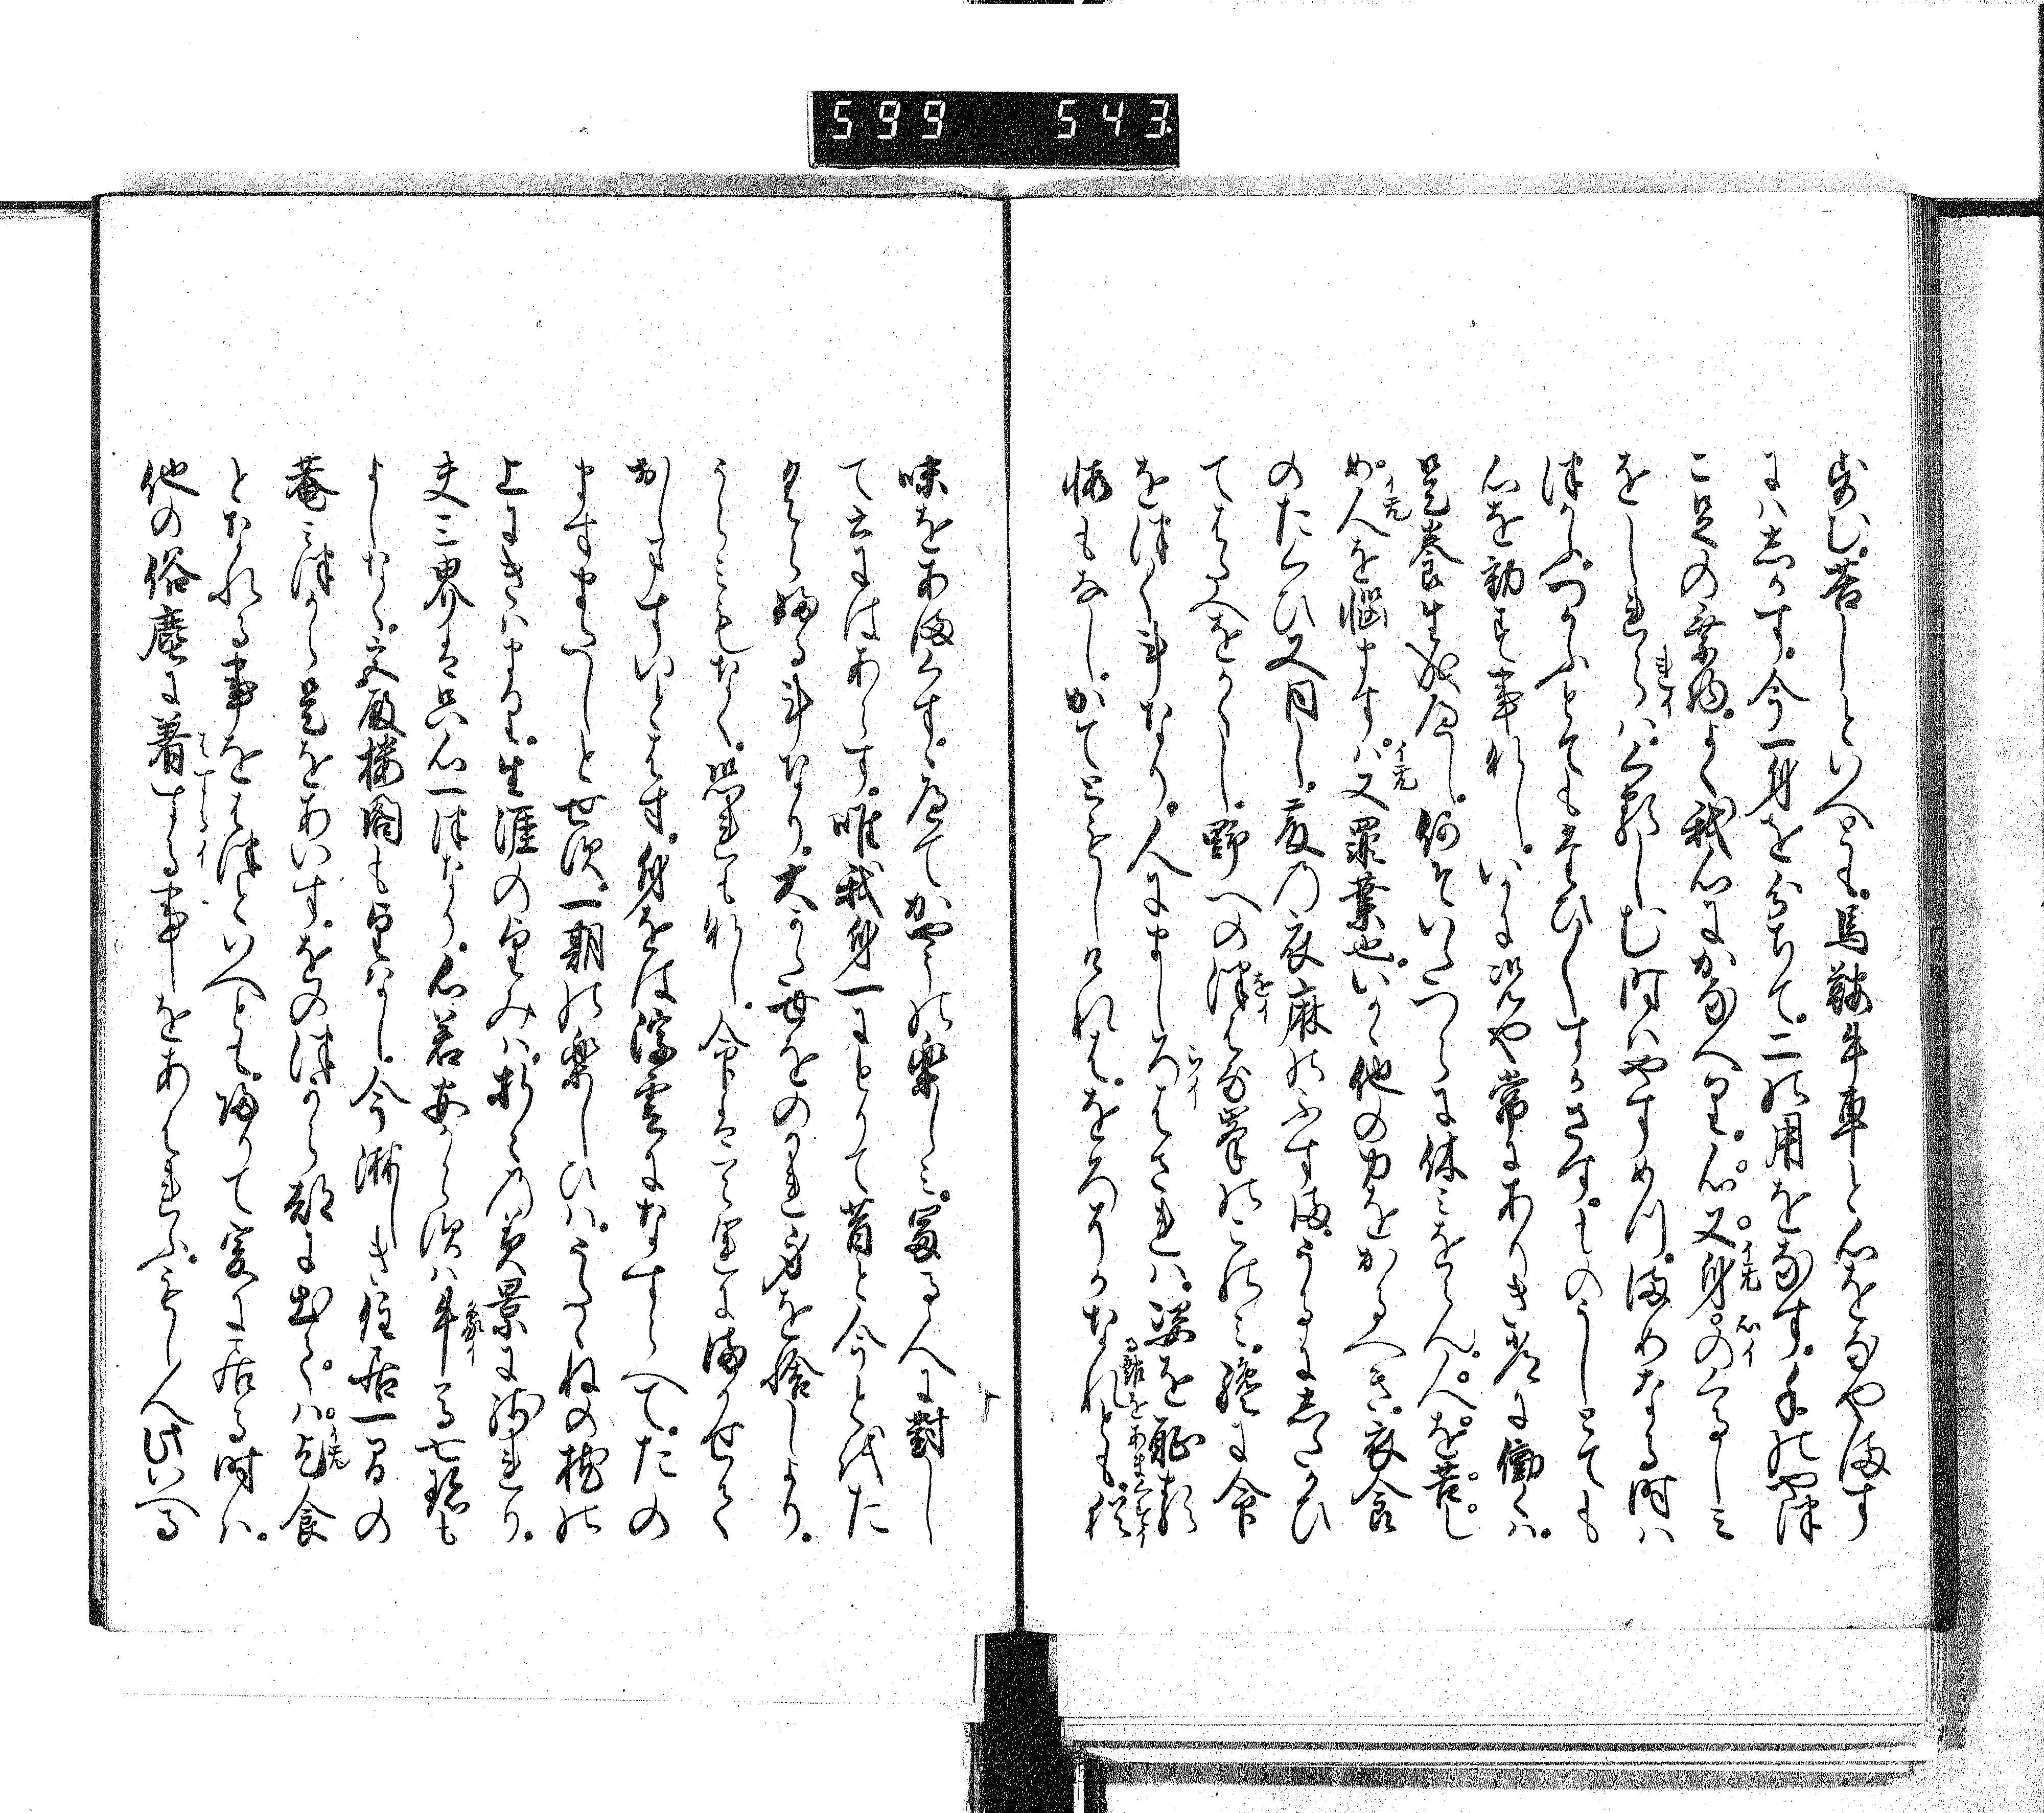 599 543
歩む。苦しといへとも。馬鞍牛車と心をなやます
にはしかす。今一身を分ちて。二の用をなす。手のやつ
こ足の乗物。よく我心にかなへり。心。又身。のくるしミ
をしれらハ。くるしむ時ハやすめつ。まめなる時ハ
つかふ。つかふとてもたひ〱すかさす。ものうしとても
心を動す事なし。いかに况や常にありき常に働くハ。
是養生成へし。何そいたつらに休ミをらん。人。を。苦。し。
め。人を悩ます。ハ又罪業也。いかゝ他の力をかるへき。衣食
のたくひ又同し。藤の衣麻のふすま。うるにしたかひ
てはたへをかくし。野へのつはな峯のこのミ。纔に命
をつく斗なり。人にましろはされハ。姿を恥る
悔もなし。かてともしけれは。をろそかなれとも。猶
味をあまくす。すへてかやうの楽しミ。冨る人に對し
て云にはあらす。唯我身一にとりて昔と今とをた
くらふる斗なり。大かた世をのかれ身を捨しより。
うらミもなく。恐れも
なし。命は天運にまかせて
おしますいとはす。身をは浮雲になすらへて。たの
ますまたしとせす。一期の楽しひハ。うたゝねの枕の
上にきハまり。生涯の望みハ。折〻の美景に残れり。
夫三界は只心一つなり。心若安からすハ牛馬七珎も
よしなく。宮殿樓閣も望なし。今淋しき住居一間の
菴ミつから是をあいす。をのつから都に出てハ。乞食
となれる事をはつといへとも。帰りて爰に居る時ハ。
他の俗塵に着する事をあはれふ。もし人此いへる